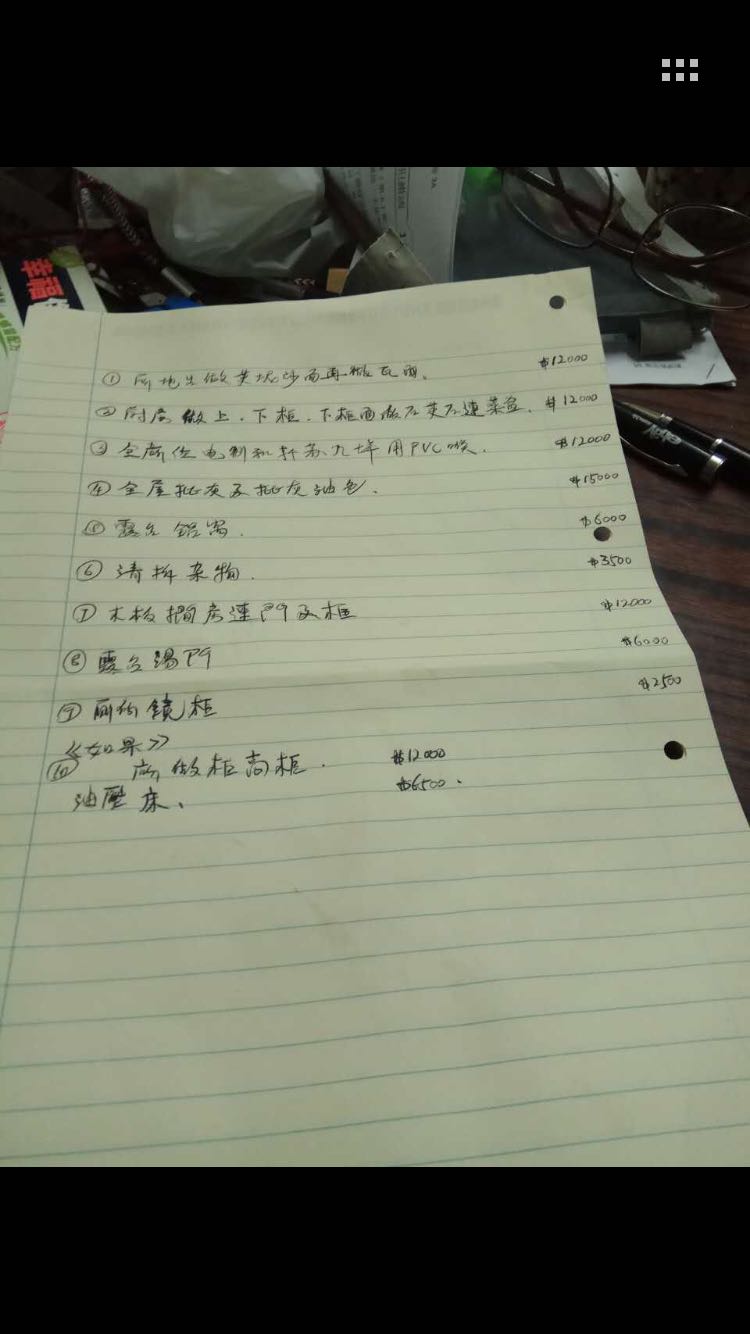 幸福
① 所地台做英坭沙面再鋪瓦面. $12000
② 厨房做上.下柜.下柜面做石英石連菜盆. $12000
③ 全屋 电制和 用PVC喉. $12000
④ 全屋批灰及批灰油色. $15000
⑤ 露台鋁窗. $6000
⑥ 清拆杂物. $3500
⑦ 木板擱房連門及框 $12000
⑧ 露台湯門 $6000
⑨ 厕所鏡柜 $2500
《如果》
⑩ 做柜高柜. $12000
油壓床、 $6500.